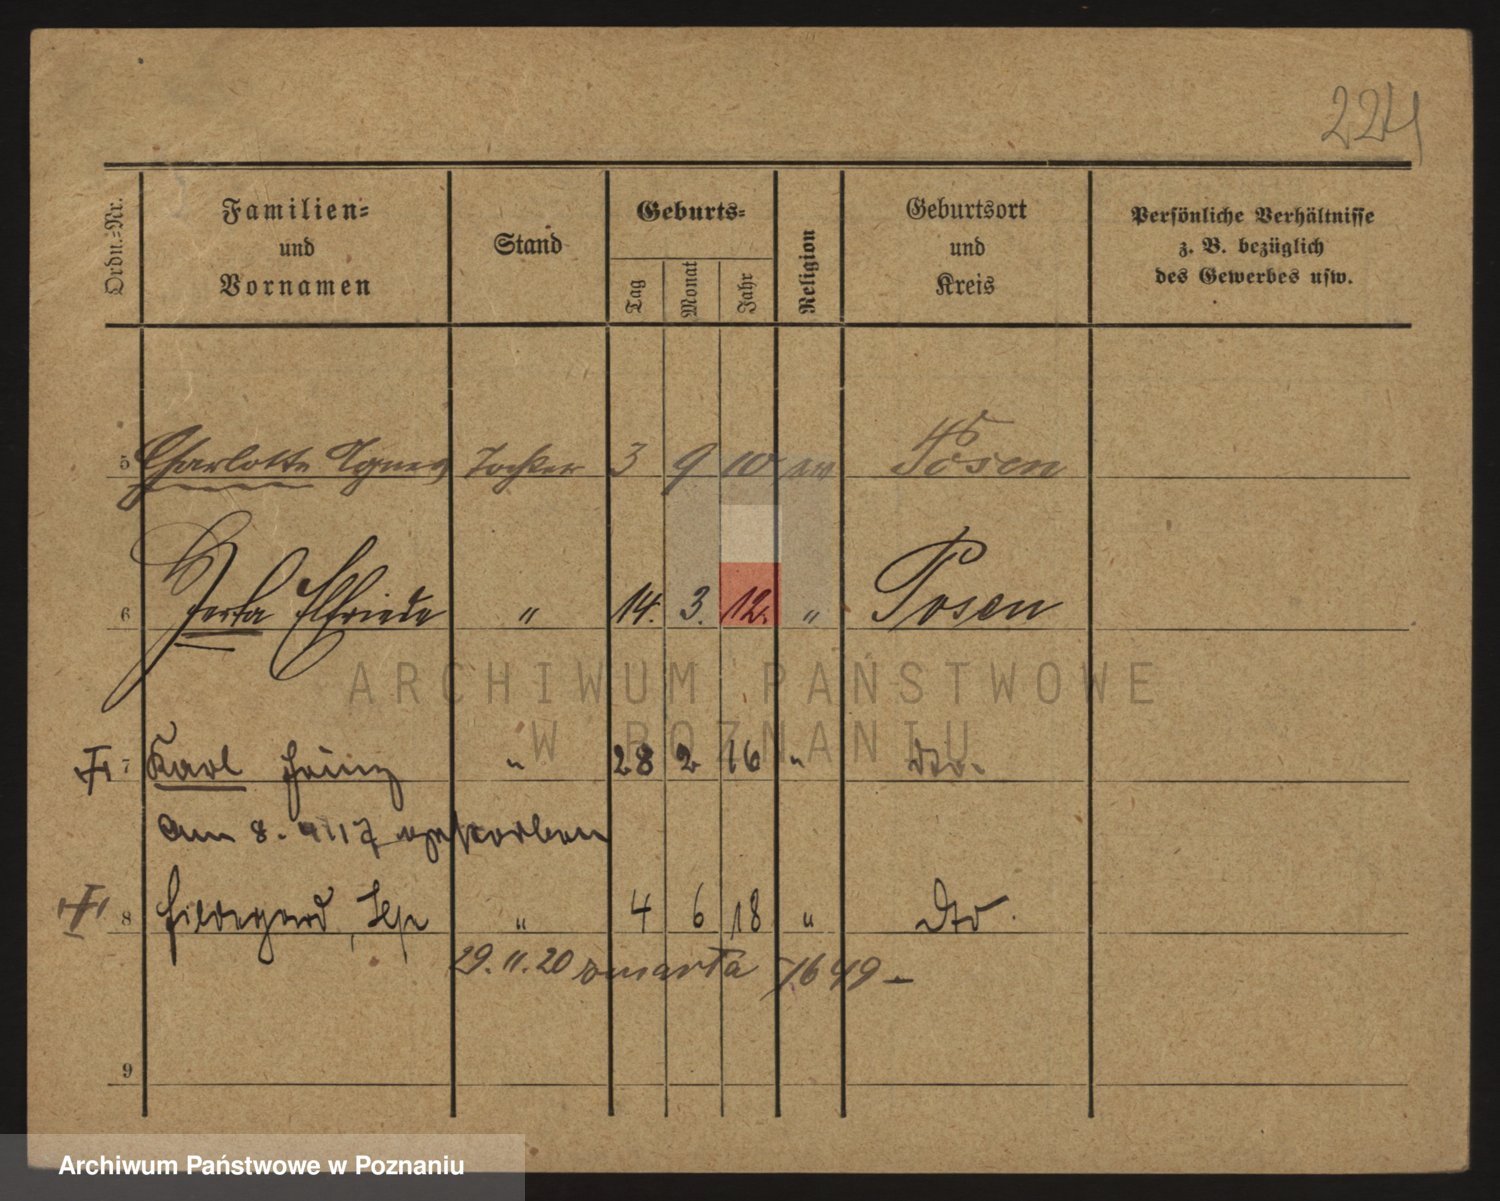 224
Ordn.-Nr.
Familien- und Vornamen
Stand
Geburts-
Tag
Monat
Jahr
Religion
Geburtsort und Kreis
Persönliche Verhältnisse z. B. bezüglich des Gewerbes usw.
5 Charlotte Agnes Tochter 3 9 10 ev Posen
6 Herta Elfriede " 14. 3. 12. " Posen
ARCHIWUM PAŃSTWOWE
W POZNANIU
7 Karl Heinz " 28 2 16 " Dto.
am 8. gestorben
8 Hildegard, Ilse " 4 6 18 " Dto.
29. 11. 20 zmarła
9
Archiwum Państwowe w Poznaniu